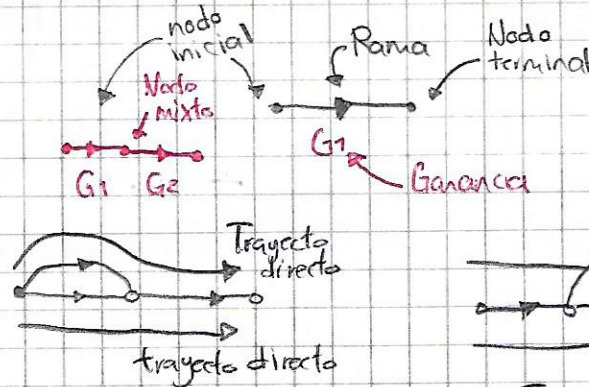 nodo
inicial
Rama
Nodo
terminal
Nodo
mixto
G1
G1 G2
Ganancia
Trayecto
directo
trayecto directo